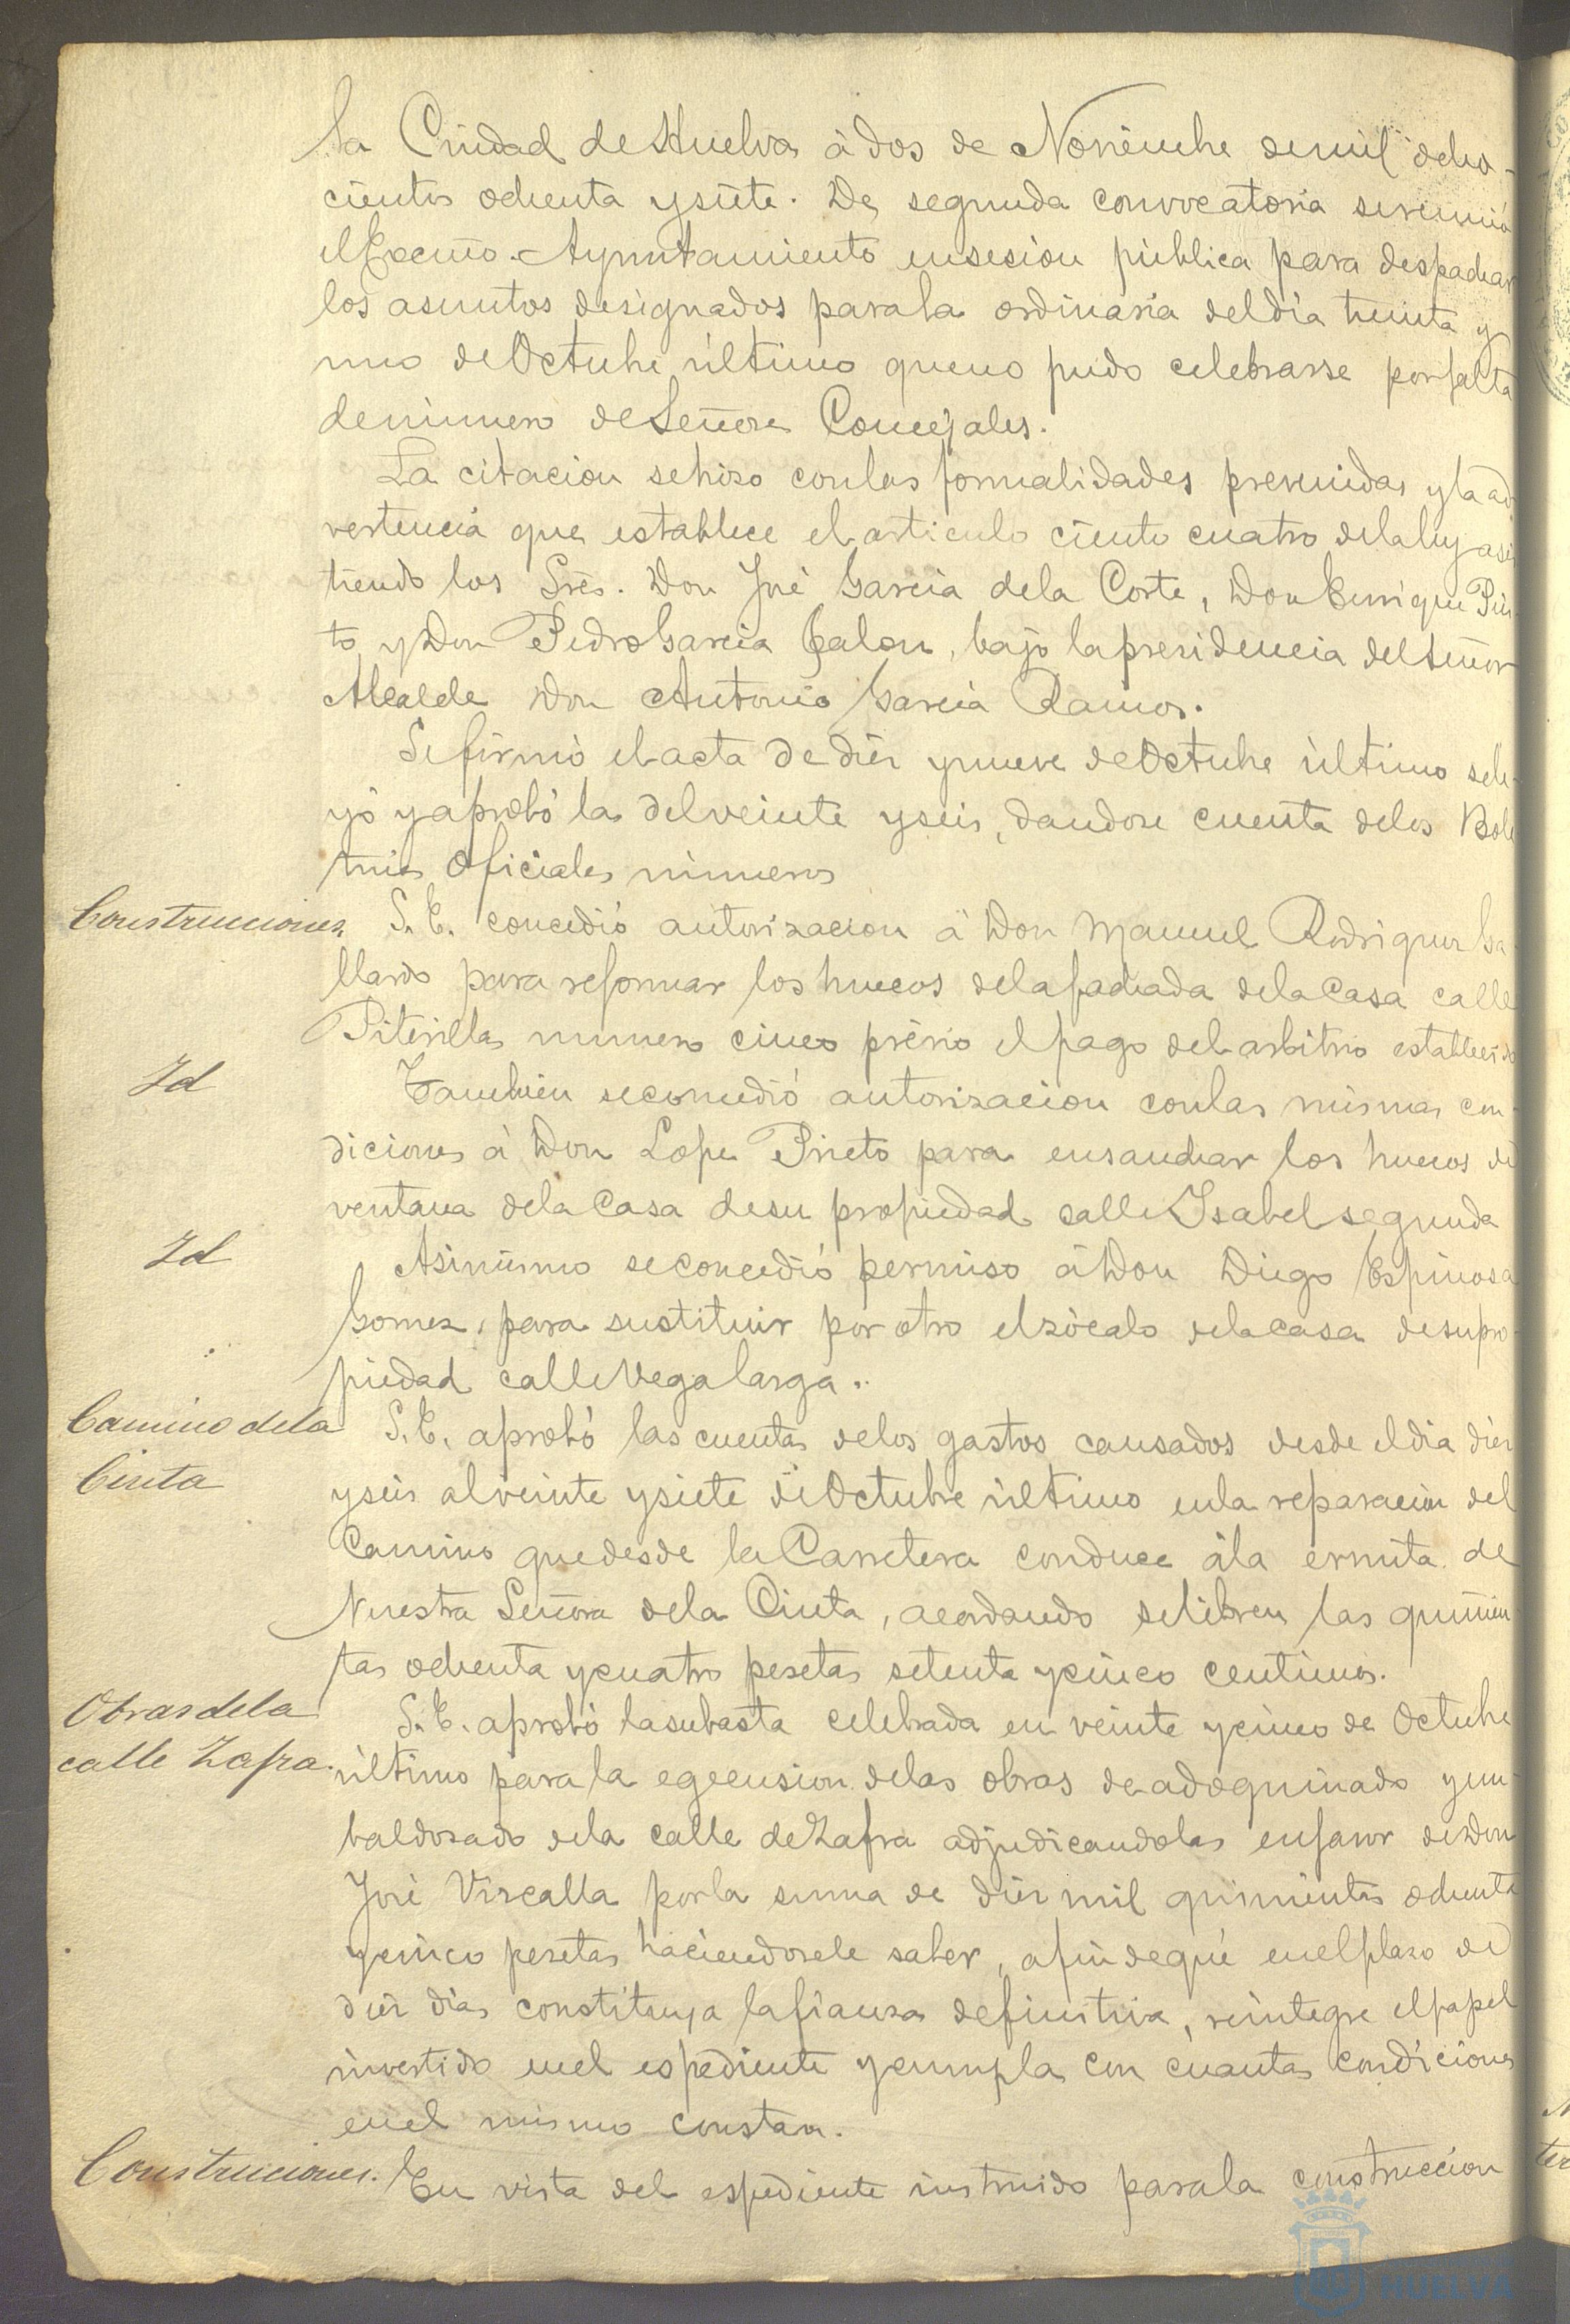 la Ciudad de Huelva á dos de Noviembre de mil ocho-
cientos ochenta y siete. De segunda convocatoria se reunió
el Excmo. Ayuntamiento en sesion pública para despachar
los asuntos designados para la ordinaria del dia treinta y
uno de Octubre último que no pudo celebrarse por falta
de número de Señores Concejales.
La citacion se hizo con las formalidades prevenidas y la ad
vertencia que establece el articulo ciento cuatro de la ley asis
tiendo los Sres. Don José Garcia de la Corte, Don Enrique Pin
to, y Don Pedro Garcia Jalon, bajo la presidencia del Señor
Alcalde Don Antonio Garcia Ramos.
Se firmó el acta de diez y nueve de Octubre último se le-
yó y aprobó la del veinte y seis, dandose cuenta de los Bole
tines Oficiales números
Construcciones S. E. concedió autorizacion á Don Manuel Rodriguez Ga-
llardo para reformar los huecos de la fachada de la Casa calle
Piterilla número cinco prévio el pago del arbitrio establecido
Id Tambien se concedió autorizacion con las mismas con-
diciones á Don Lope Prieto para ensanchar los huecos de
ventana de la Casa de su propiedad calle Isabel segunda
Id Asimismo se concedió permiso á Don Diego Espinosa
Gomez, para sustituir por otro el zócalo de la casa de su pro-
piedad calle Vega larga.
Camino de la S. E. aprobó las cuentas de los gastos causados desde el dia diez
Cinta y seis al veinte y siete de Octubre último en la reparacion del
Camino que desde la Carretera conduce á la ermita de
Nuestra Señora de la Cinta, acordando se libren las quinien-
tas ochenta y cuatro pesetas setenta y cinco centimos.
Obras de la S. E. aprobó la subasta celebrada en veinte y cinco de Octubre
calle Zafra. último para la egecusion de las obras de adoquinado y em-
baldosado de la calle de Zafra adjudicandolas en favor de Don
José Vizcalla por la suma de diez mil quinientas ochenta
y cinco pesetas haciendosele saber, a fin de que en el plazo de
diez dias constituya la fianza definitiva, reintegre el papel
invertido en el espediente y cumpla con cuantas condiciones
en el mismo constan.
Construcciones. En vista del espediente instruido para la construccion
HUELVA